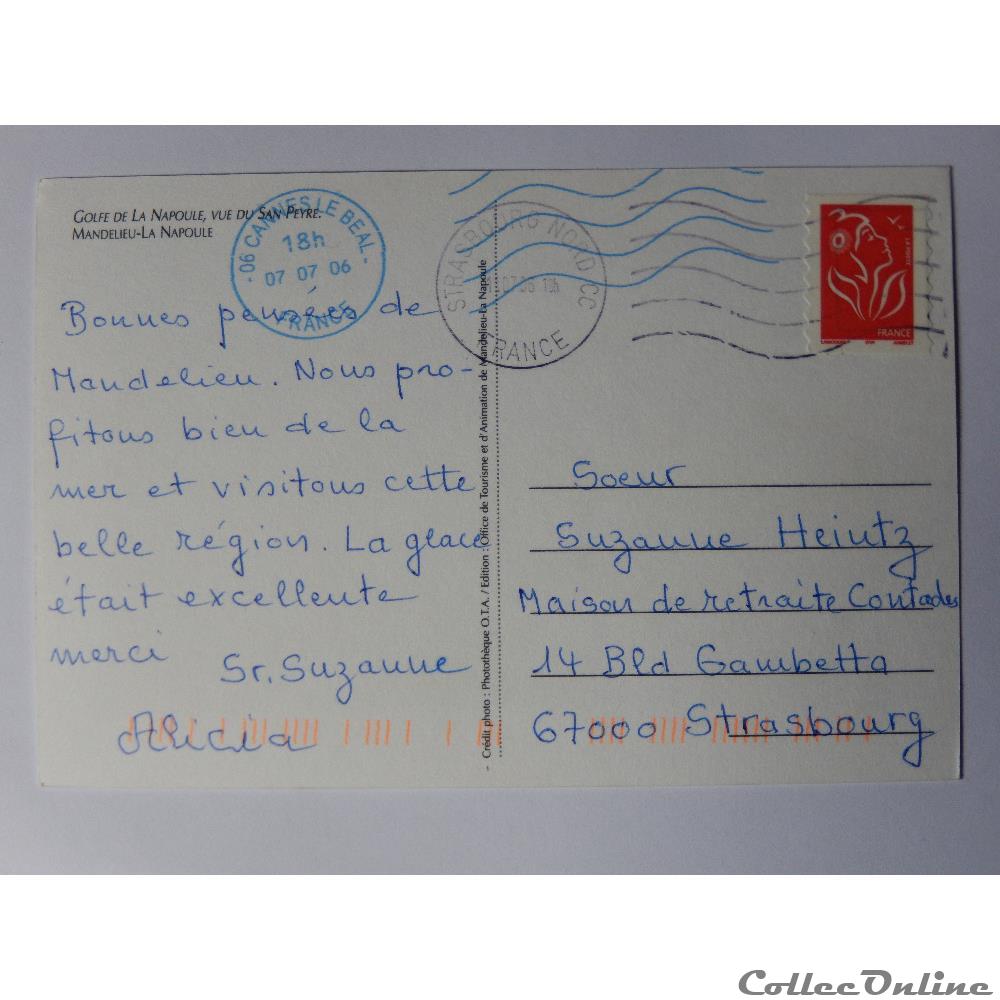 GOLFE DE LA NAPOULE, VUE DU SAN PEYRE.
MANDELIEU-LA NAPOULE
06 CANNES LE BEAL
18h
07 07 06
FRANCE
STRASBOURG NORD CC
FRANCE
FRANCE
Bonnes pensées de
Mandelieu. Nous pro-
fitons bien de la
mer et visitons cette
belle région. La glace
était excellente
merci Sr. Suzanne
Alicia
Crédit photo : Photothèque O.T.A. / Edition : Office de Tourisme et d'Animation de Mandelieu-La Napoule
Soeur
Suzanne Heintz
Maison de retraite Contades
14 Bld Gambetta
67000 Strasbourg
CollecOnline